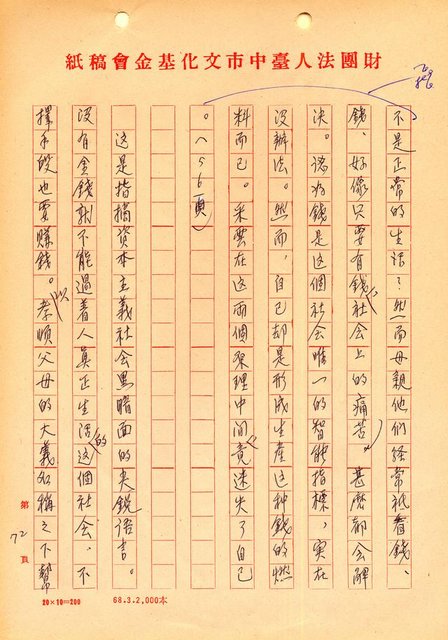 財團法人臺中市文化基金會稿紙
不是正常的生活？然而母親他們經常祇看錢、
錢、好像只要有錢，社會上的痛苦。甚麼都會解
決。認為錢是這個社會唯一的智能指標，實在
沒辦法。然而，自己却是形成生產這种錢的燃
料而已。采雲在這兩個架理中间竟迷失了自己
。（56頁）
這是指摘資本主義社会黑暗面的尖銳语言。
沒有金錢就不能過着人真正生活的這個社会、不
擇手段也要賺錢。以孝順父母的大義名稱之下幫
第72頁
20×10=200
68.3.2,000本